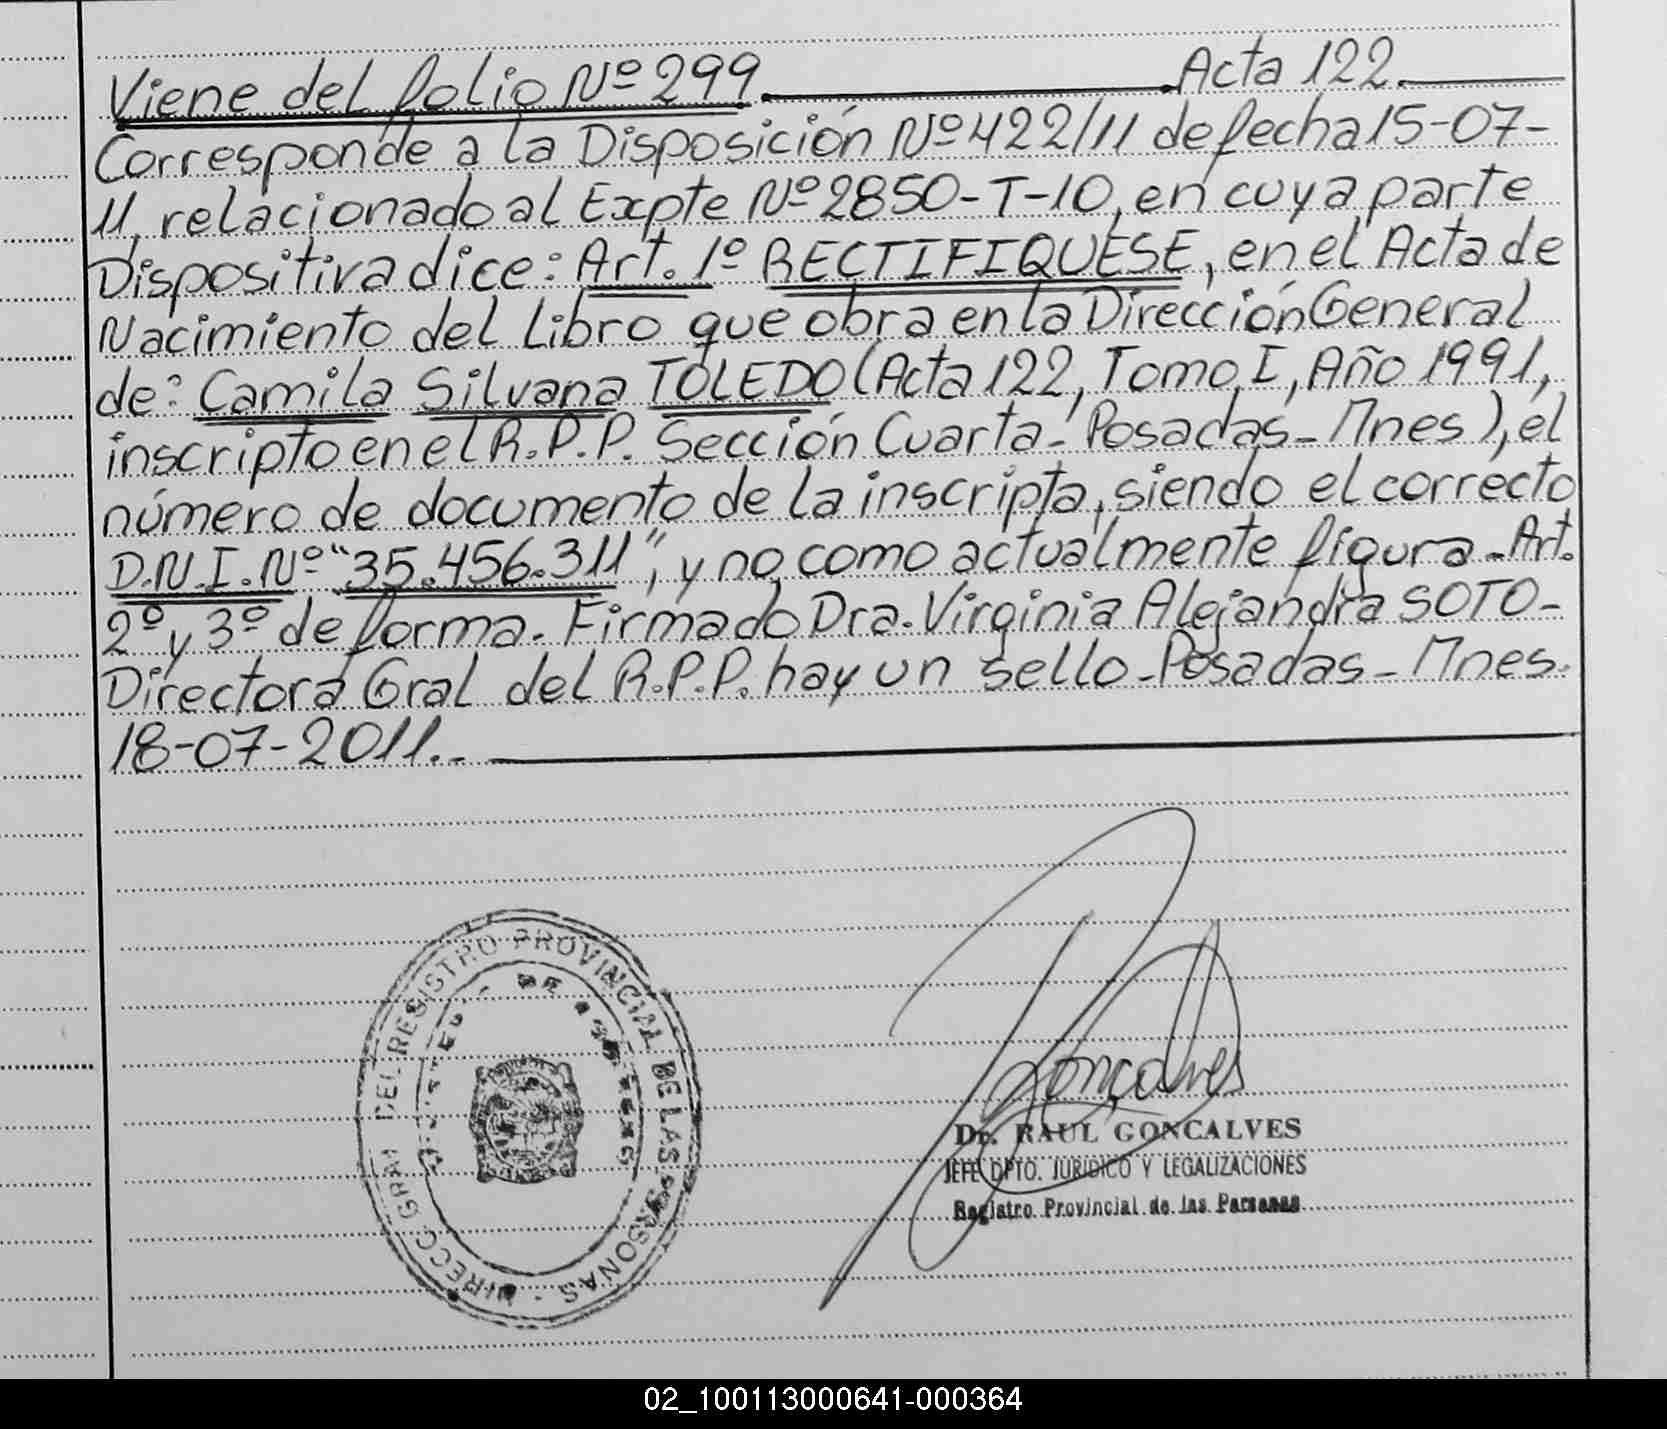 Viene del folio Nº 299. Acta 122.
Corresponde a la Disposición Nº 422/11 de fecha 15-07-
11, relacionado al Expte Nº 2850-T-10, en cuya parte
Dispositiva dice: Art. 1º RECTIFIQUESE, en el Acta de
Nacimiento del Libro que obra en la Dirección General
de: Camila Silvana TOLEDO (Acta 122, Tomo I, Año 1991,
inscripto en el R.P.P. Sección Cuarta - Posadas - Mnes), el
número de documento de la inscripta, siendo el correcto
D.N.I. Nº "35.456.311", y no como actualmente figura - Art.
2º y 3º de forma. Firmado Dra. Virginia Alejandra SOTO -
Directora Gral del R.P.P. hay un sello - Posadas - Mnes.
18-07-2011.-
DIRECC. GRAL DEL REGISTRO PROVINCIAL DE LAS PERSONAS -
Gonçalves
Dr. RAUL GONCALVES
JEFE DPTO. JURIDICO Y LEGALIZACIONES
Registro Provincial de las Personas
02_100113000641-000364